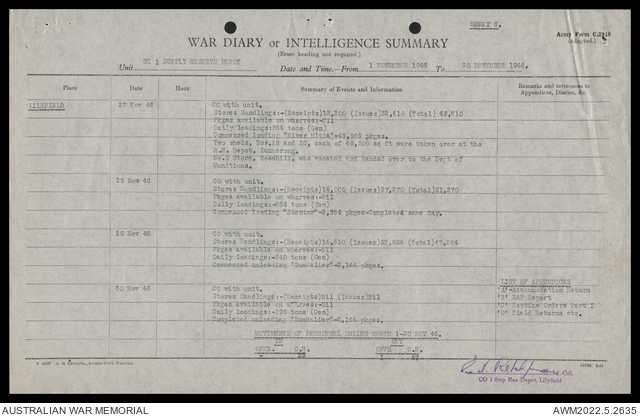 SHEET 5.
Army Form C.2118
(Adapted.)
WAR DIARY or INTELLIGENCE SUMMARY
(Erase heading not required.)
Unit NO 1 SUPPLY RESERVE DEPOT Date and Time—From 1 NOVEMBER 1946 To 30 NOVEMBER 1946.
Place Date Hour Summary of Events and Information Remarks and references to
Appendices, Diaries, &c.
LILYFIELD 27 Nov 46 CO with unit.
Stores Handlings:-(Receipts)13,200 (Issues)32,610 (Total)
Pkges available on wharves:-Nil
Daily loadings:-554 tons (Gen)
Commenced loading "River Mitta" pkges.
Two sheds, Nos. and each of 49,500 sq ft were taken over at the
Depot, Dunnerong.
No.9 Store, Rosehill, was vacated and handed over to the Dept of
Munitions.
28 Nov 46 CO with unit.
Stores Handlings:-(Receipts)14,000 (Issues)37,370 (Total)51,370
Pkges available on wharves:-Nil
Daily loadings:- tons (Gen)
Commenced loading "Stentor" pkges-Completed same day.
29 Nov 46 CO with unit.
Stores Handlings:-(Receipts)14,310 (Issues)32,954 (Total)47,264
Pkges available on wharves:-Nil
Daily loadings:-540 tons (Gen)
Commenced unloading "Dundalier"-3,144 pkges.
30 Nov 46 CO with unit.
Stores Handling:-(Receipts)Nil (Issues)Nil
Pkges available on wharves:-Nil
Daily loadings:-195 tons (Gen)
Completed unloading "Dundalier"-3,144 pkges.
LIST OF APPENDICES
'A'-Accommodation Return
'B' RAP Report
'C' Routine Orders Part I
'D' Field Returns etc.
MOVEMENTS OF PERSONNEL DURING MONTH 1-30 NOV 46.
IN OUT
OFFR. O.R. OFFR. O.R.
- 23 1 47
Lt Col.
CO 1 Sup Res Depot Lilyfield
AUSTRALIAN WAR MEMORIAL
AWM2022.5.2635